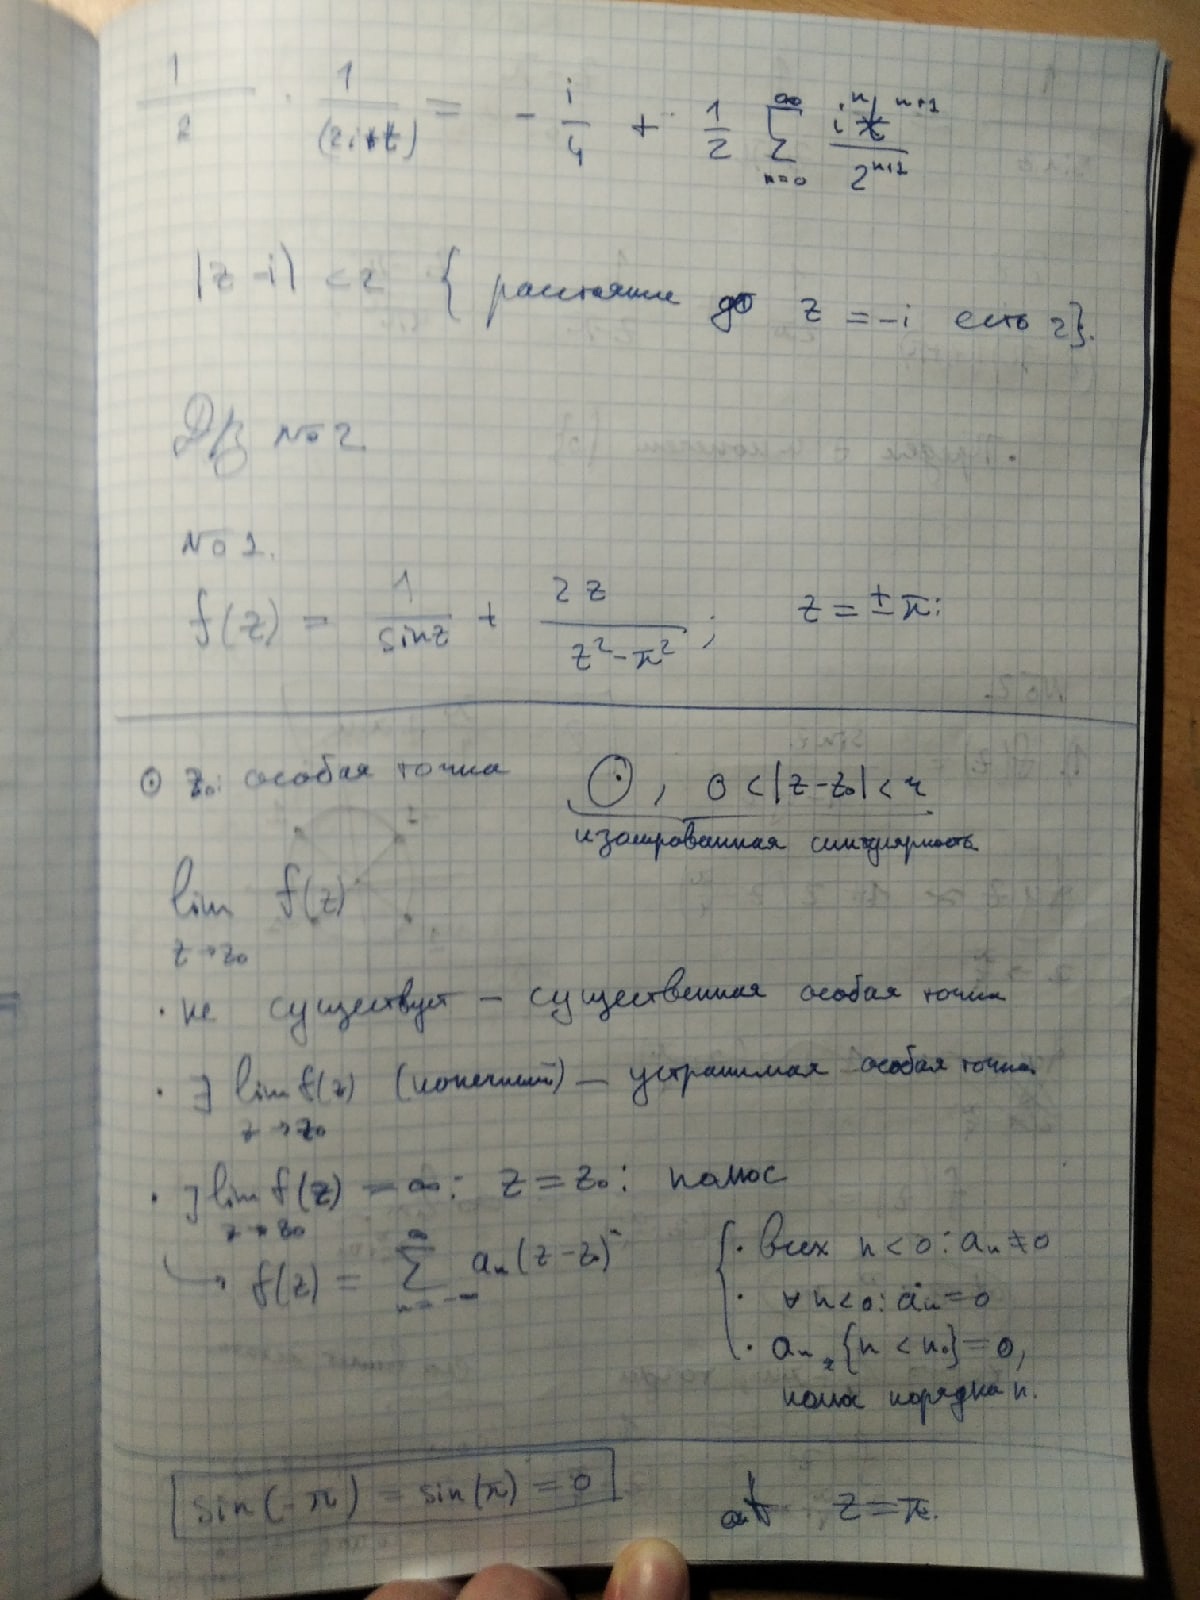 1/2 · 1/(2i+t) = - i/4 + 1/2 ∑_{n=0}^{∞} i^n t^{n+1} / 2^{n+1}
|z-i| < 2 { расстояние до z = -i есть 2}.
ДЗ №2
№1.
f(z) = 1/sinz + 2z/(z²-π²); z = ±π:
⊙ z₀: особая точка ⊙, 0 < |z-z₀| < r
изолированная сингулярность
lim_{z→z₀} f(z)
· не существует – существенная особая точка
· ∃ lim_{z→z₀} f(z) (конечный) – устранимая особая точка.
· ∃ lim_{z→z₀} f(z) = ∞: z = z₀: полюс
↳ f(z) = ∑_{n=-∞}^{∞} aₙ(z-z₀)ⁿ
{ · всех n<0: aₙ≠0
· ∀ n<0: aₙ=0
· aₙ, {n < n₀}=0,
полюс порядка n.
sin(-π) = sin(π) = 0
at z = π.